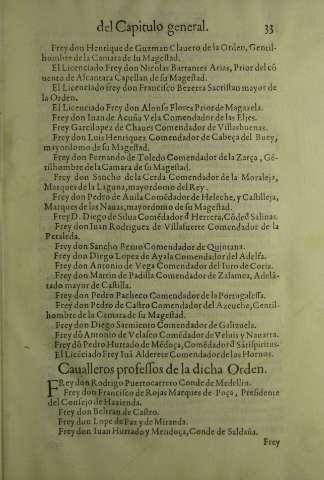 del Capitulo general. 33
Frey don Henrique de Guzman Clauero de la Orden, Gentil-
hombre de la Camara de su Magestad.
El Licenciado Frey don Nicolas Barrantes Arias, Prior del cõ
uento de Alcantara Capellan de su Magestad.
El Licenciado frey don Francisco Bezerra Sacristan mayor de
la Orden.
El Licenciado Frey don Alonso Flores Prior de Magazela.
Frey don Iuan de Acuña Vela Comendador de las Eljes.
Frey Garcilopez de Chaues Comendador de Villasbuenas.
Frey don Luis Henriquez Comendador de Cabeça del Buey,
mayordomo de su Magestad.
Frey don Fernando de Toledo Comendador de la Zarça, Gē-
tilhombre de la Camara de su Magestad.
Frey don Sancho de la Cerda Comendador de la Moraleja,
Marques de la Laguna, mayordomo del Rey.
Frey don Pedro de Auila Comēdador de Heleche, y Castilleja,
Marques de las Nauas, mayordomo de su Magestad.
Frey D. Diego de Silua Comēdador đ Herrera, Cōde đ Salinas.
Frey don Iuan Rodriguez de Villafuerte Comendador de la
Peraleda.
Frey don Sancho Comendador de Quintana.
Frey don Diego Lopez de Ayala Comendador del Adelfa.
Frey don Antonio de Vega Comendador del Iuro de Coria.
Frey don Martin de Padilla Comendador de Zalamea, Adelā-
tado mayor de Castilla.
Frey don Pedro Pacheco Comendador de la Portugalessa.
Frey don Pedro de Castro Comendador del Azeuche, Gentil-
hombre de la Camara de su Magestad.
Frey don Diego Sarmiento Comendador de Galizuela.
Frey dō Antonio de Velasco Comēdador de Veluis y Nauarra.
Frey dō Pedro Hurtado de Mēdoça, Comēdador đ Sātispiritus.
El Licēciado Frey Iuā Alderete Comendador de los Hornos.
Caualleros professos de la dicha Orden.
Frey don Rodrigo Puertocarrero Conde de Medellin.
Frey don Francisco de Rojas Marques de Poça, Presidente
del Consejo de Hazienda.
Frey don Beltran de Castro.
Frey don Lope de Paz y de Miranda.
Frey don Iuan Hurtado y Mendoça, Conde de Saldaña.
Frey